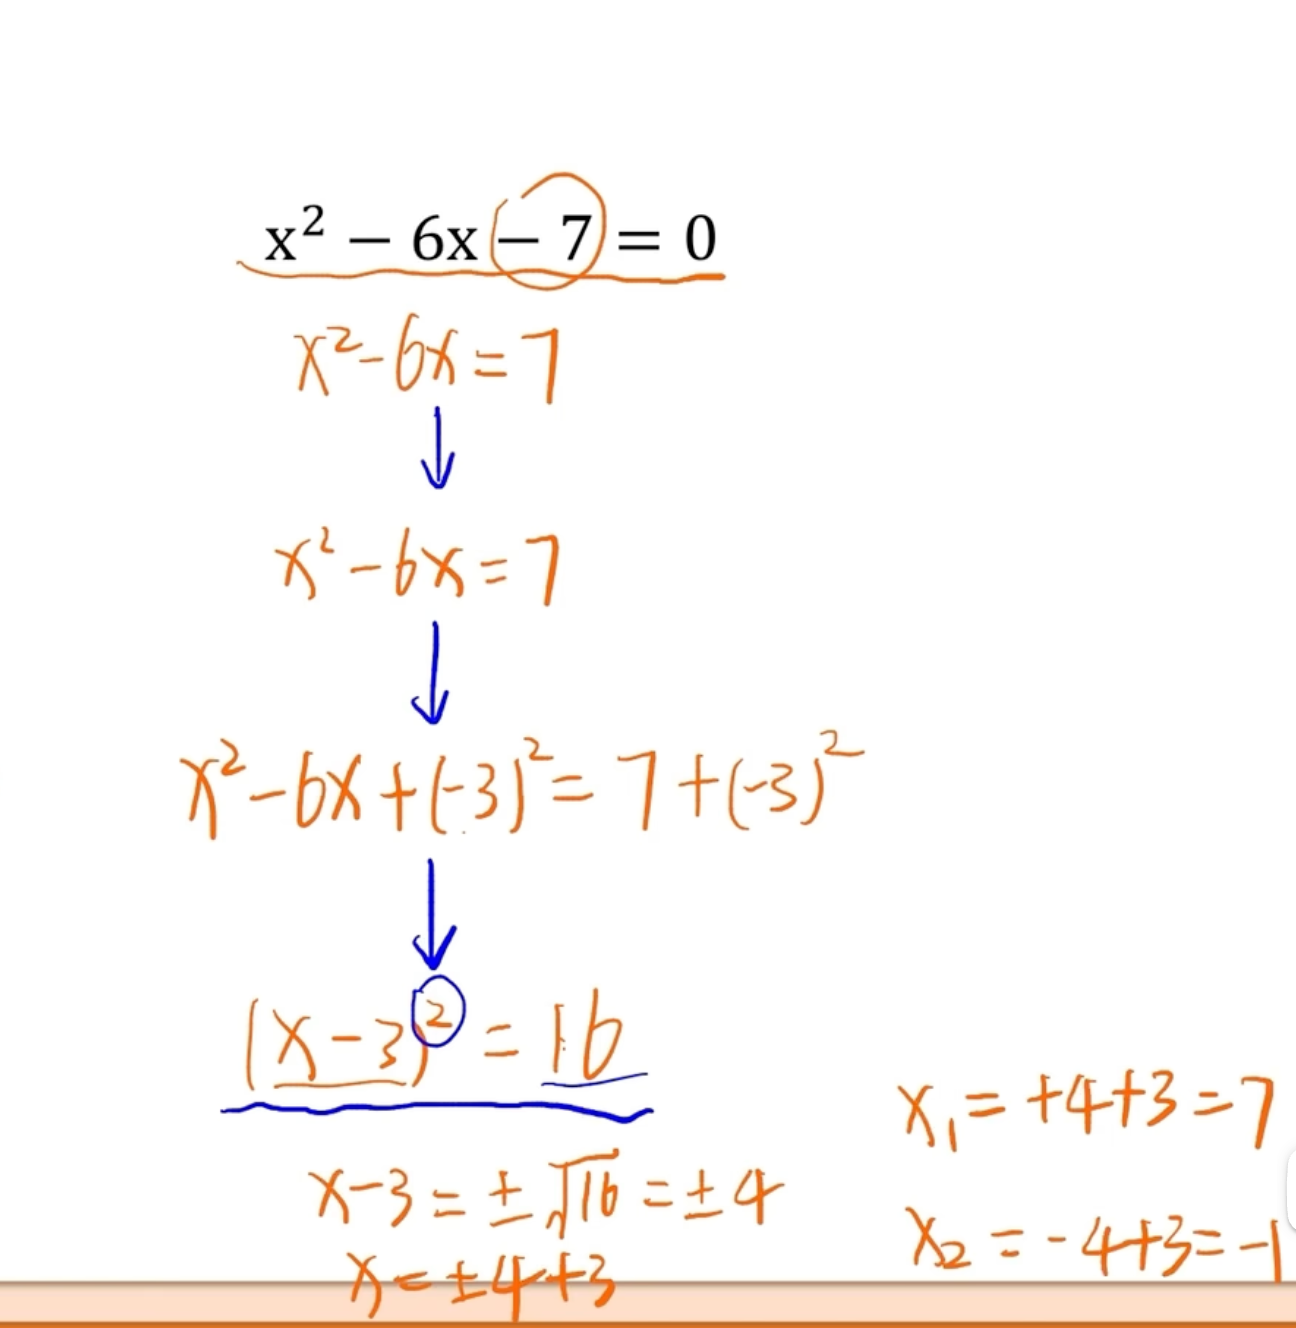 x² − 6x − 7 = 0
x²-6x=7
x²-6x=7
x²-6x+(-3)²=7+(-3)²
(x-3)²=16
x-3=±√16=±4
x=±4+3
x₁=+4+3=7
x₂=-4+3=-1